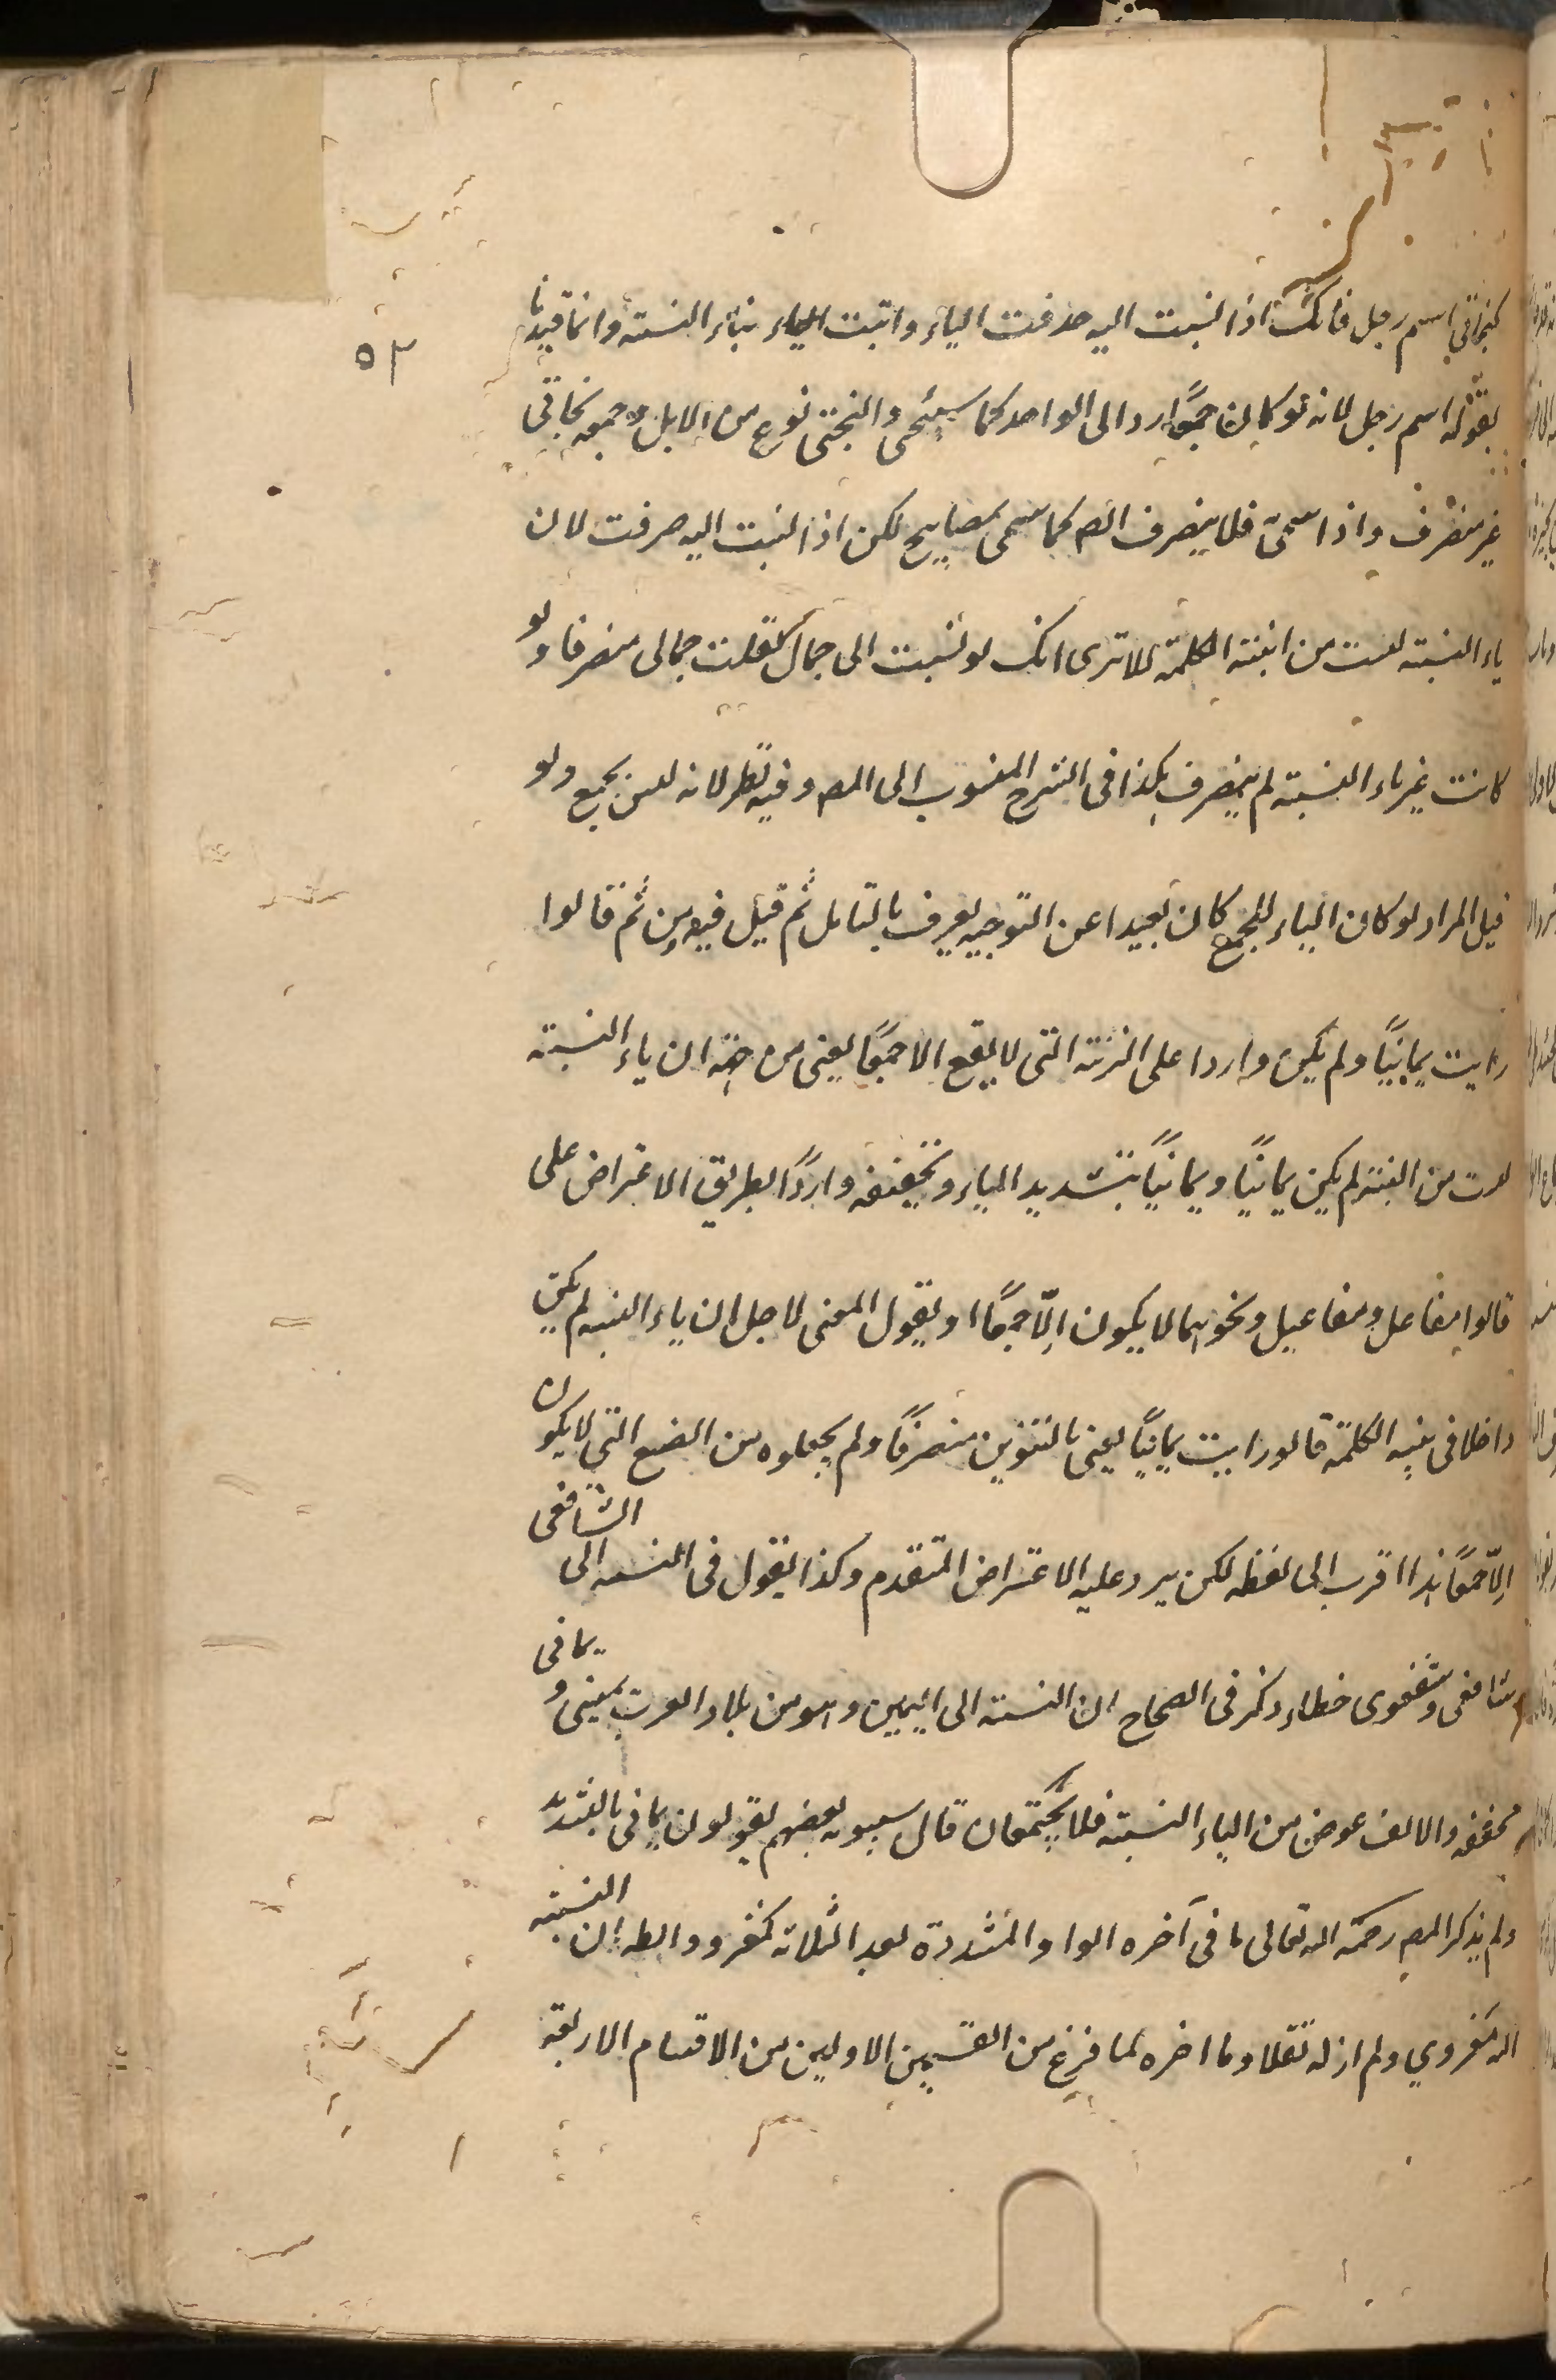 كبخاتي اسم رجل فانك اذا نسبت اليه حذفت الياء واتيت الياء بياء النسبة وانما قيدنا
٥٣
بقوله اسم رجل لانه لو كان جمعًا رد الى الواحد كما سيجئ والبختي نوع من الابل وجمعه بخاتي
غير منصرف واذا سمى فلا ينصرف ايضا كما سمى بمصابيح لكن اذا نسبت اليه صرفت لان
ياء النسبة ليست من ابنية الكلمة الا ترى انك لو نسبت الى جمال لقلت جمالى منصرفا ولو
كانت غير ياء النسبة لم ينصرف هكذا فى الشرح المنسوب الى المص وفيه نظر لانه ليس بجمع ولو
قيل المراد لو كان الياء للجمع كان بعيدا عن التوجيه يعرف بالتامل ثم قيل فيه ومن ثم قالوا
رايت يمانيًا ولم يكن واردا على الزنة التى لا يقع الا جمعًا يعنى من جهة ان ياء النسبة
ليست من البنية لم يكن يمانيًا ويمانيًا بتشديد الياء وتخفيفه واردًا بطريق الاعتراض على
قالوا مفاعل ومفاعيل ونحوهما لا يكون الّا جمعًا او يقول المعنى لاجل ان ياء النسبة لم يكن
داخلا فى بنية الكلمة قالو رايت يمانيًا يعنى بالتنوين منصرفًا ولم يجعلوه من الصيغ التى لا يكون
الّا جمعًا هذا اقرب الى لفظه لكن يرد عليه الاعتراض المتقدم وكذا يقول فى النسبة الى الشافعى
شافعى وشفعوى خطاء ذكر فى الصحاح ان النسبة الى اليمين وهو من بلاد العرب يمنى و يمانى
مخففه والالف عوض من الياء النسبة فلا يجتمعان قال سيبويه بعضهم يقولون يمانى بالتشديد
ولم يذكر المص رحمة الله تعالى ما فى آخره الواو المشددة بعد الثلاثة كمغزو والظ ان النسبة
اليه مغزوي ولم ار له نقلا وما اخره لما فرغ من القسمين الاولين من الاقسام الاربعة